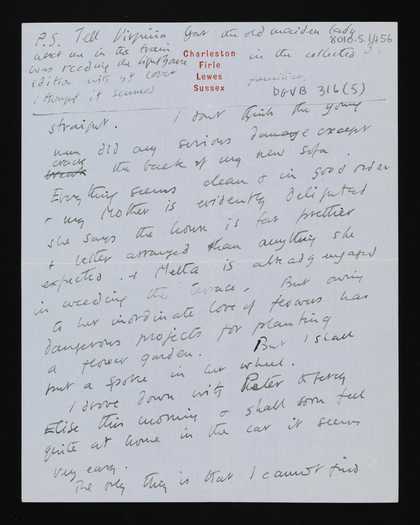 P.S. Tell Virginia that the old maiden lady
next me in the train
was reading the Lighthouse in the collected
edition with yr cover
I thought it seemed familiar.
8010.5.1/456
Charleston
Firle
Lewes
Sussex
DGVB 316(5)
straight. I don't think the young
man did any serious damage except
crack the back of my new sofa
Everything seems clean & in good order
& my Mother is evidently delighted
she says the house is far prettier
& better arranged than anything she
expected. & Metta is already engaged
in weeding the terrace. But owing
to her inordinate love of flowers has
dangerous projects for planting
a flower garden. But I shall
put a spoke in her wheel.
I drove down with to fetch
Elise this morning & shall soon feel
quite at home in the car it seems
very easy.
The only thing is that I cannot find